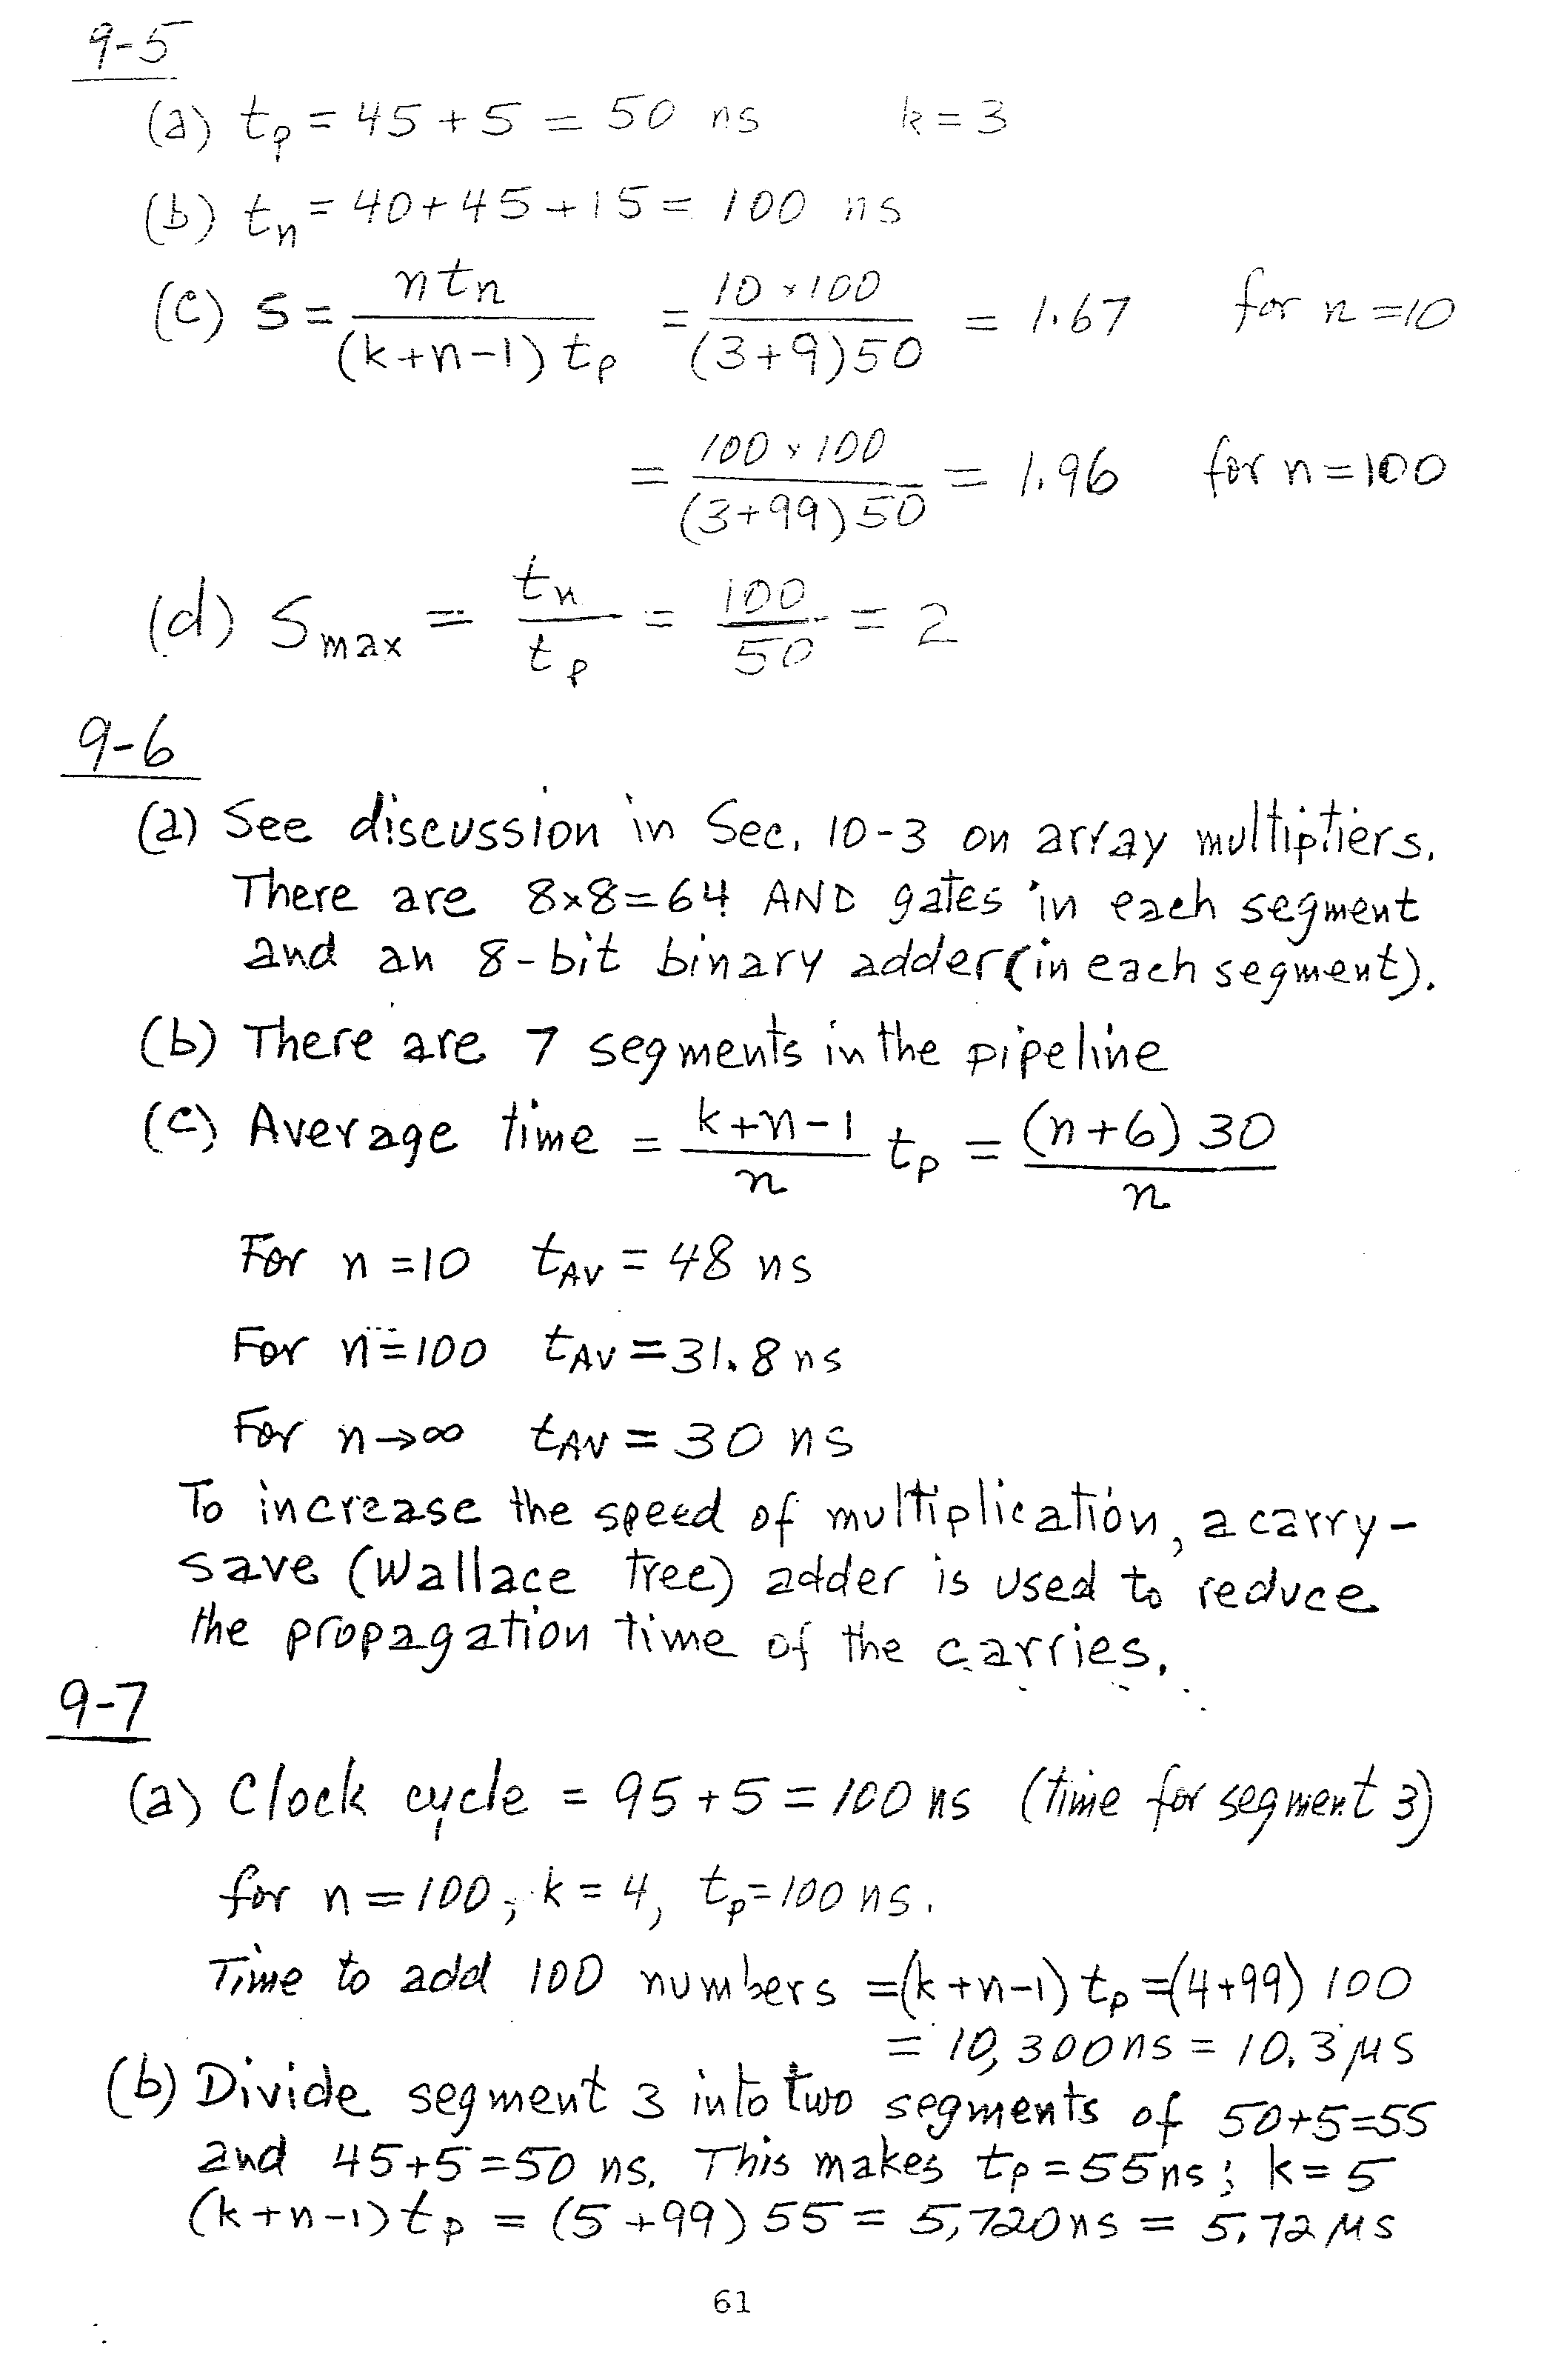 9-5
(a) tp = 45 + 5 = 50 ns k = 3
(b) tn = 40 + 45 + 15 = 100 ns
(c) S = ntn / (k+n-1) tp = 10 × 100 / (3+9)50 = 1.67 for n = 10
= 100 × 100 / (3+99)50 = 1.96 for n = 100
(d) Smax = tn / tp = 100 / 50 = 2
9-6
(a) See discussion in Sec. 10-3 on array multipliers.
There are 8×8=64 AND gates in each segment
and an 8-bit binary adder (in each segment).
(b) There are 7 segments in the pipeline
(c) Average time = k+n-1 / n tp = (n+6) 30 / n
For n = 10 tAV = 48 ns
For n = 100 tAV = 31.8 ns
For n→∞ tAV = 30 ns
To increase the speed of multiplication, a carry-
save (Wallace tree) adder is used to reduce
the propagation time of the carries.
9-7
(a) Clock cycle = 95 + 5 = 100 ns (time for segment 3)
for n = 100, k = 4, tp = 100 ns.
Time to add 100 numbers = (k+n-1) tp = (4+99) 100
= 10,300 ns = 10.3 μs
(b) Divide segment 3 into two segments of 50+5=55
and 45+5=50 ns. This makes tp = 55 ns; k = 5
(k+n-1) tp = (5+99) 55 = 5,720 ns = 5.72 μs
61